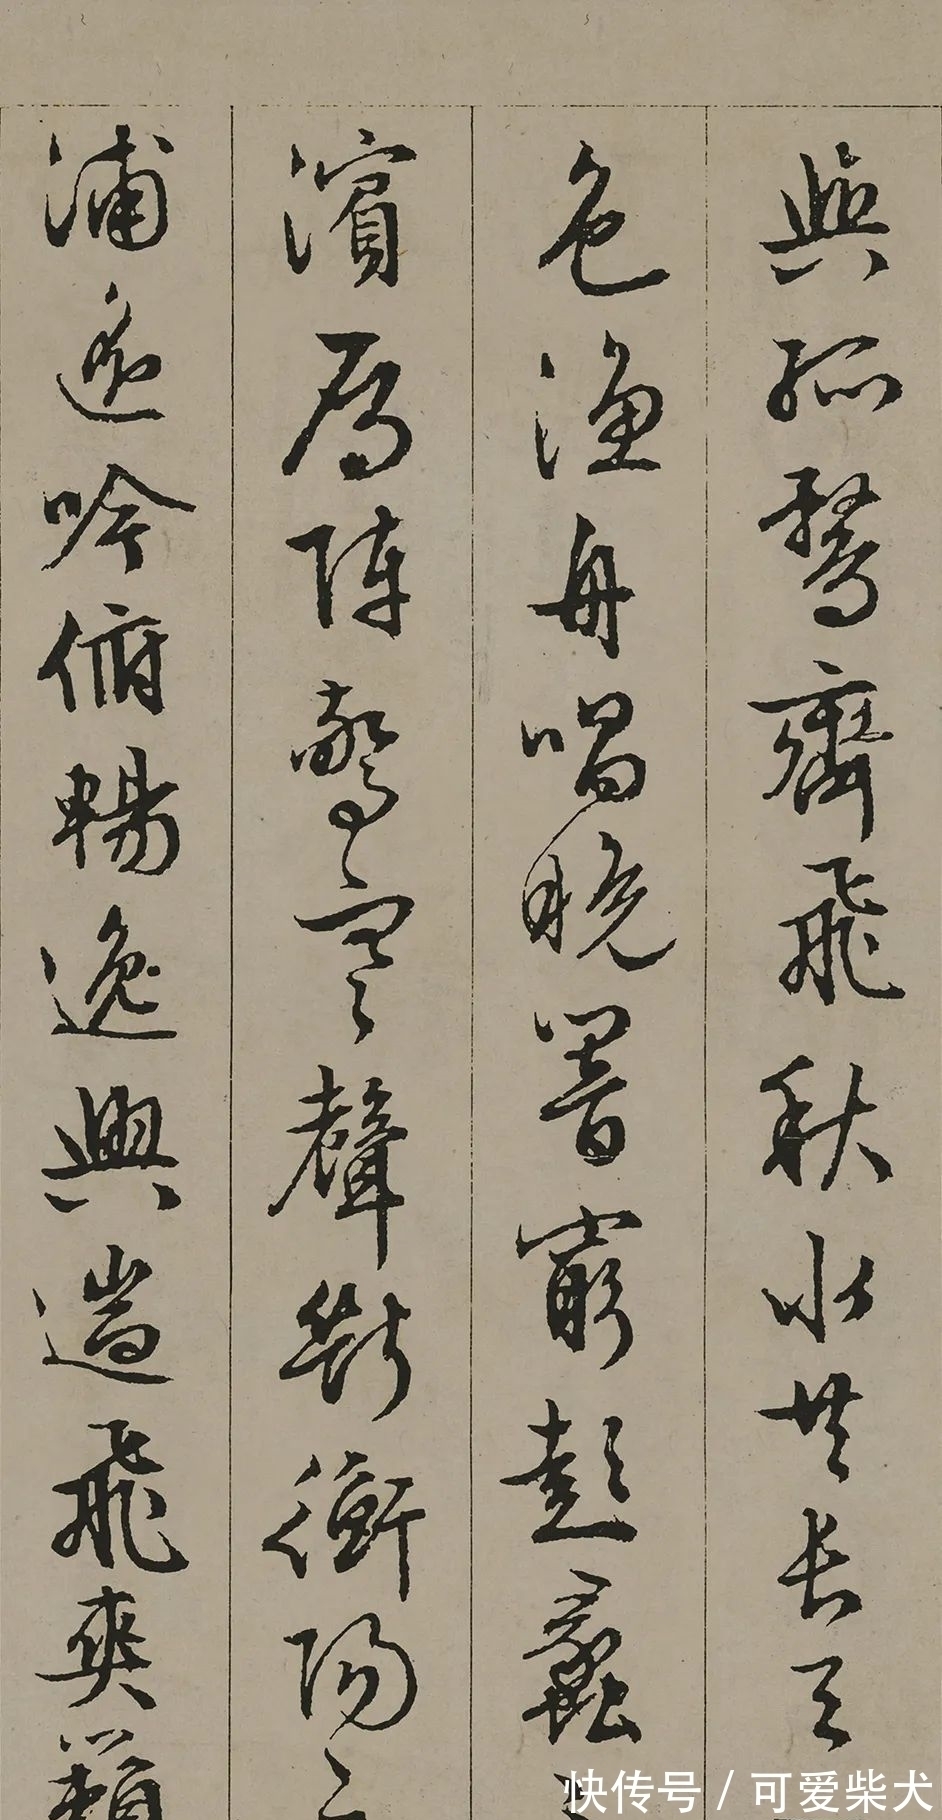 與孤鶩齊飛秋水共長天
色漁舟唱晚響窮彭蠡
濱雁陣驚寒聲斷衡陽之
浦遙吟俯暢逸興遄飛爽籟
快传号 / 可爱柴犬